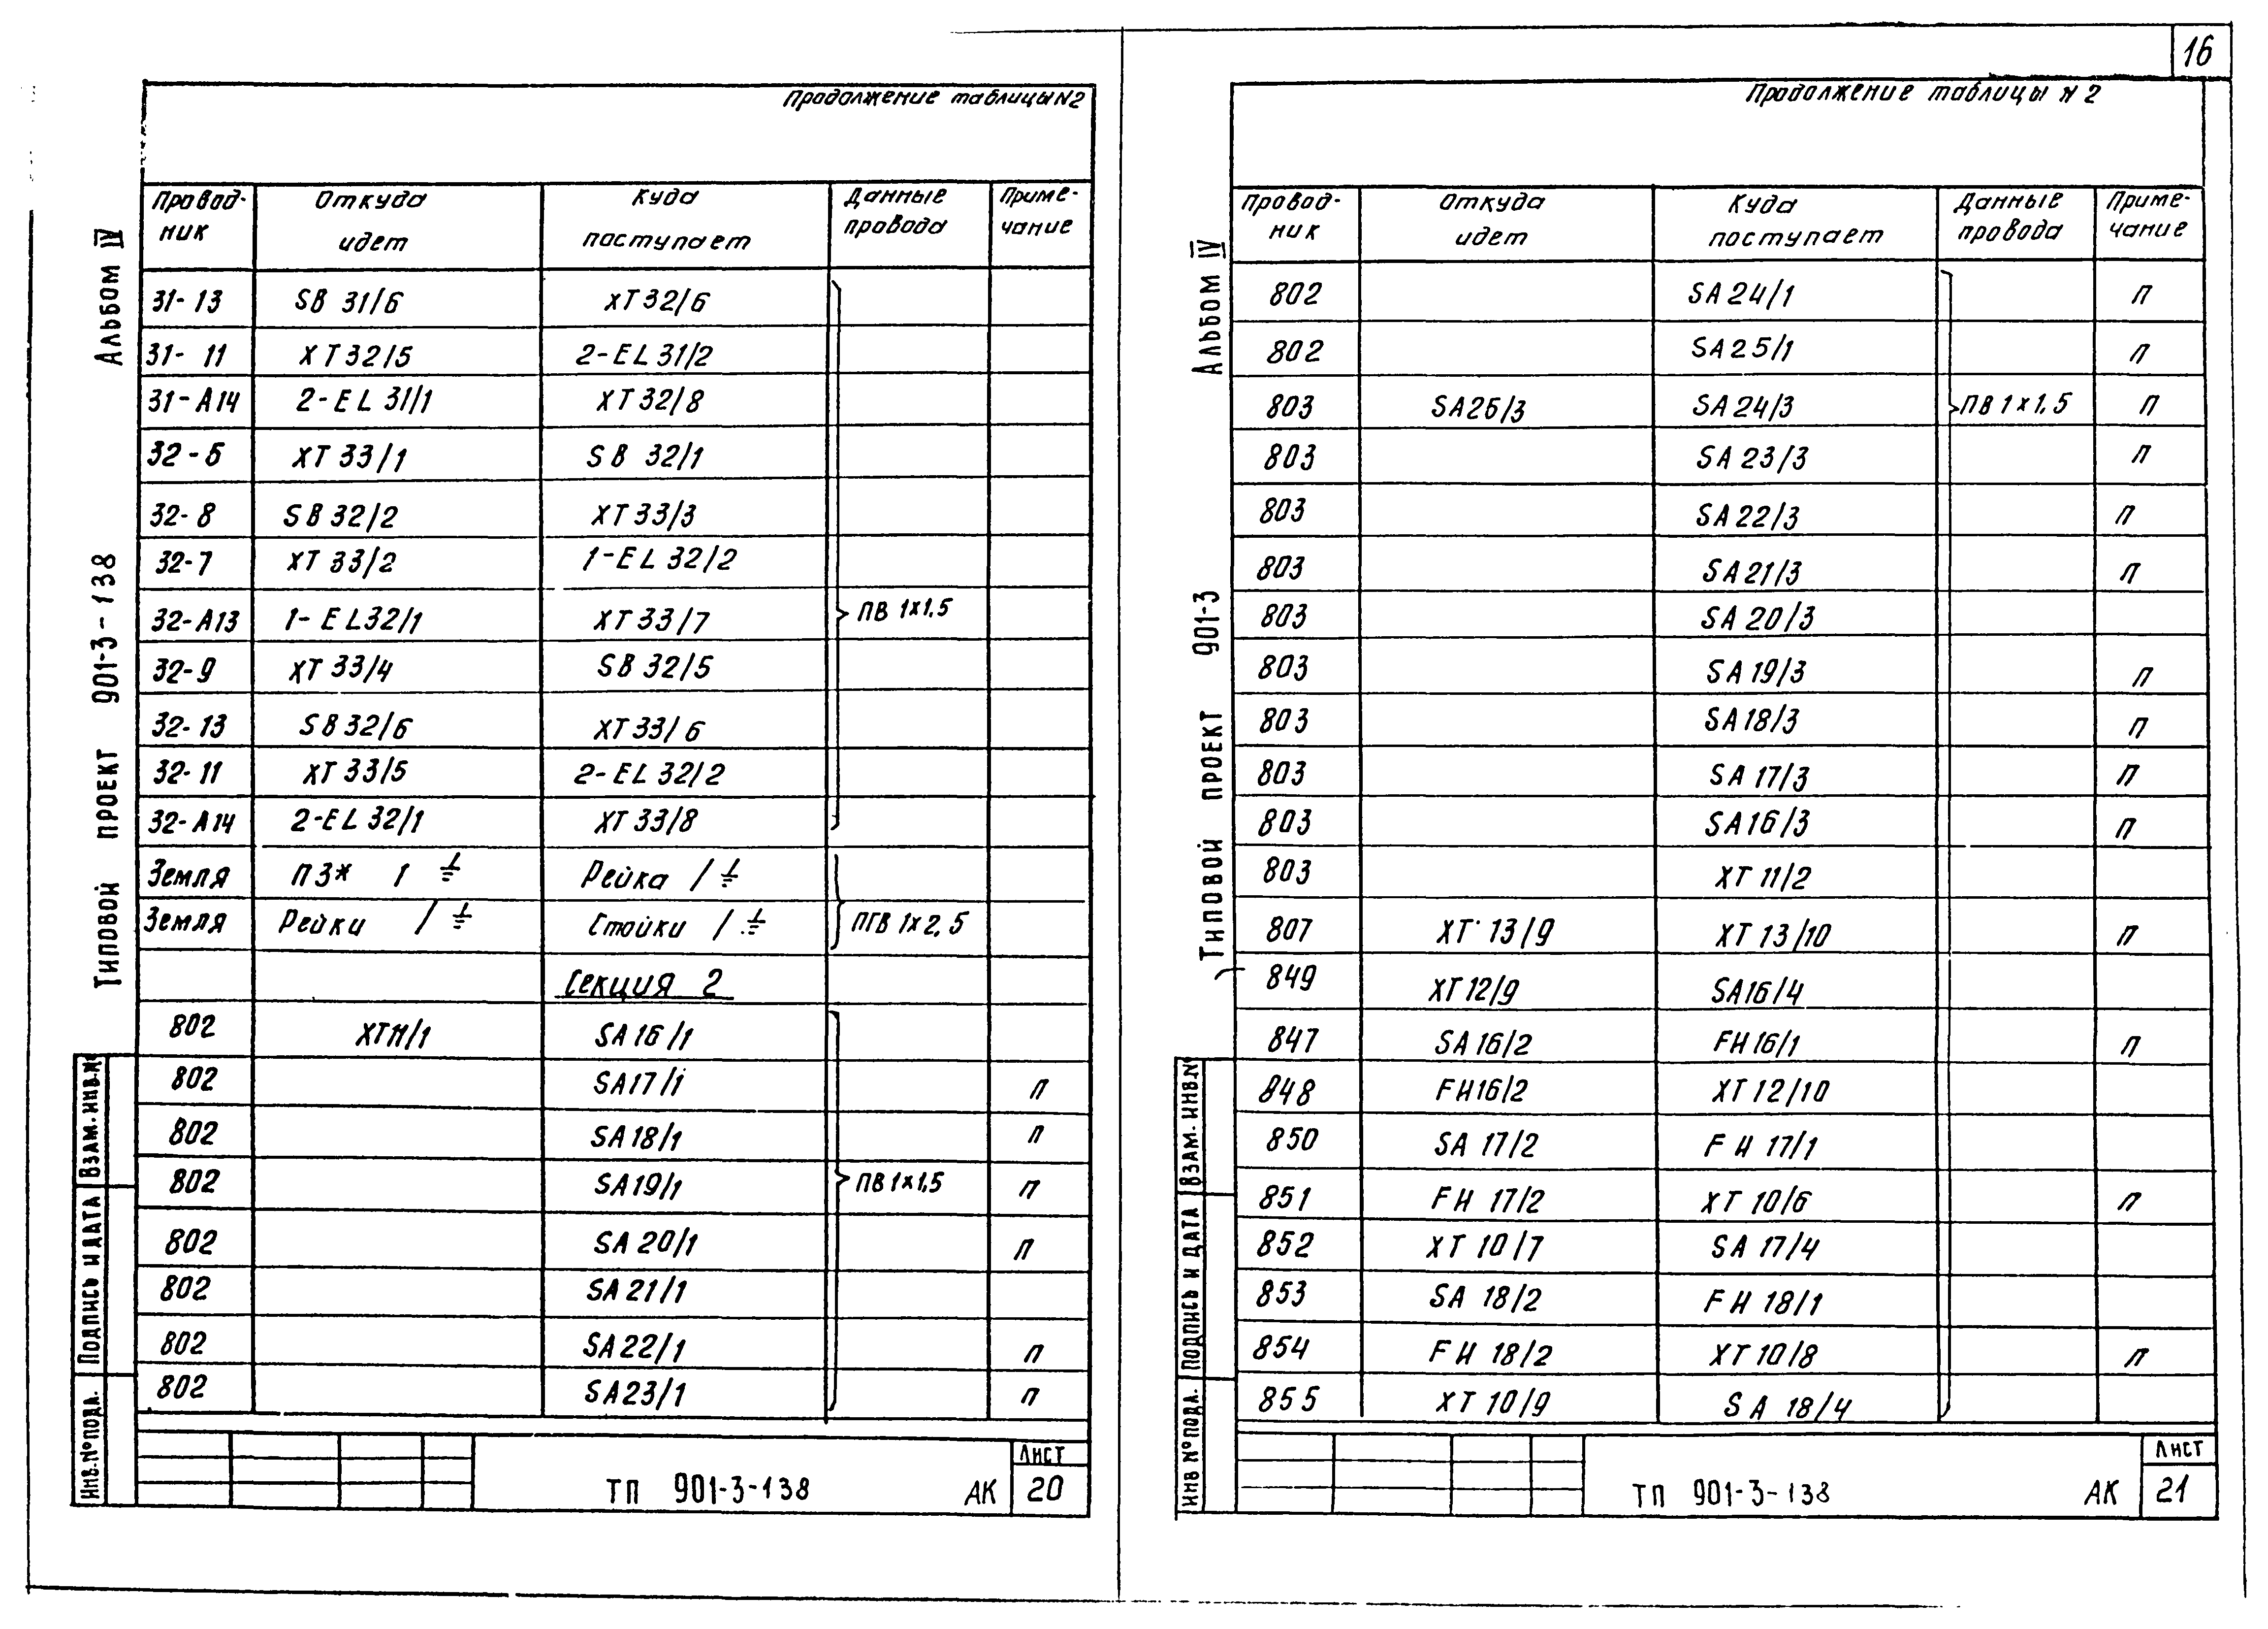 16
Продолжение таблицы N2
Провод-ник Откуда идет Куда поступает Данные провода Приме-чание
31-13 SB 31/6 XT32/6
31-11 XT32/5 2-EL31/2
31-A14 2-EL31/1 XT32/8
32-5 XT33/1 SB 32/1
32-8 SB32/2 XT33/3
32-7 XT 33/2 1-EL32/2
32-A13 1-EL32/1 XT33/7 ПВ 1x1,5
32-9 XT 33/4 SB 32/5
32-13 SB32/6 XT33/6
32-11 XT33/5 2-EL32/2
32-A14 2-EL32/1 XT33/8
Земля ПЗ* 1 ⏚ Рейка / ⏚
Земля Рейки / ⏚ Стойки / ⏚ ПГВ 1x2,5
Секция 2
802 XT11/1 SA16/1
802 SA17/1 П
802 SA18/1 П
802 SA19/1 ПВ1x1,5 П
802 SA20/1 П
802 SA21/1
802 SA22/1 П
802 SA23/1 П
ТП 901-3-138 АК
Лист
20
Альбом IV
Типовой проект 901-3-138
Взам. инв.№
Подпись и дата
Инв.№ подл.
Продолжение таблицы N 2
Провод-ник Откуда идет Куда поступает Данные провода Приме-чание
802 SA24/1 П
802 SA25/1 П
803 SA25/3 SA24/3 ПВ 1x1,5 П
803 SA23/3 П
803 SA22/3 П
803 SA21/3 П
803 SA20/3
803 SA19/3 П
803 SA18/3 П
803 SA17/3 П
803 SA16/3 П
803 XT11/2
807 XT13/9 XT13/10 П
849 XT12/9 SA16/4
847 SA16/2 FH16/1 П
848 FH16/2 XT12/10
850 SA 17/2 FH 17/1
851 FH 17/2 XT 10/6 П
852 XT 10/7 SA 17/4
853 SA 18/2 FH 18/1
854 FH 18/2 XT10/8 П
855 XT 10/9 SA 18/4
ТП 901-3-138 АК
Лист
21
Альбом IV
Типовой проект 901-3
Взам. инв.№
Подпись и дата
Инв №подл.